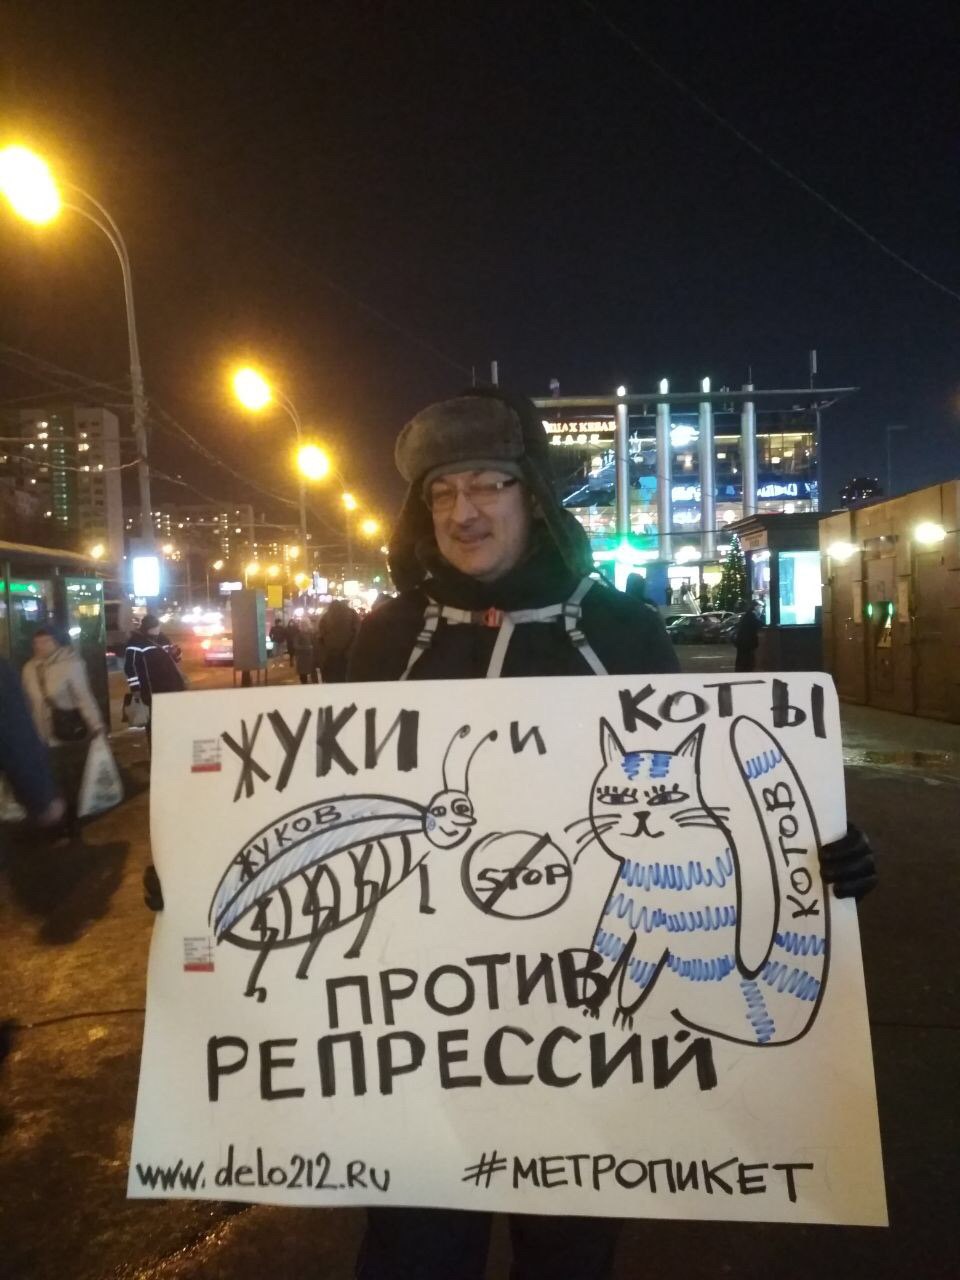 ЖУКИ И КОТЫ
ЖУКОВ
STOP
КОТОВ
ПРОТИВ
РЕПРЕССИЙ
www.delo212.RU
#МЕТРОПИКЕТ
КЕБАБ